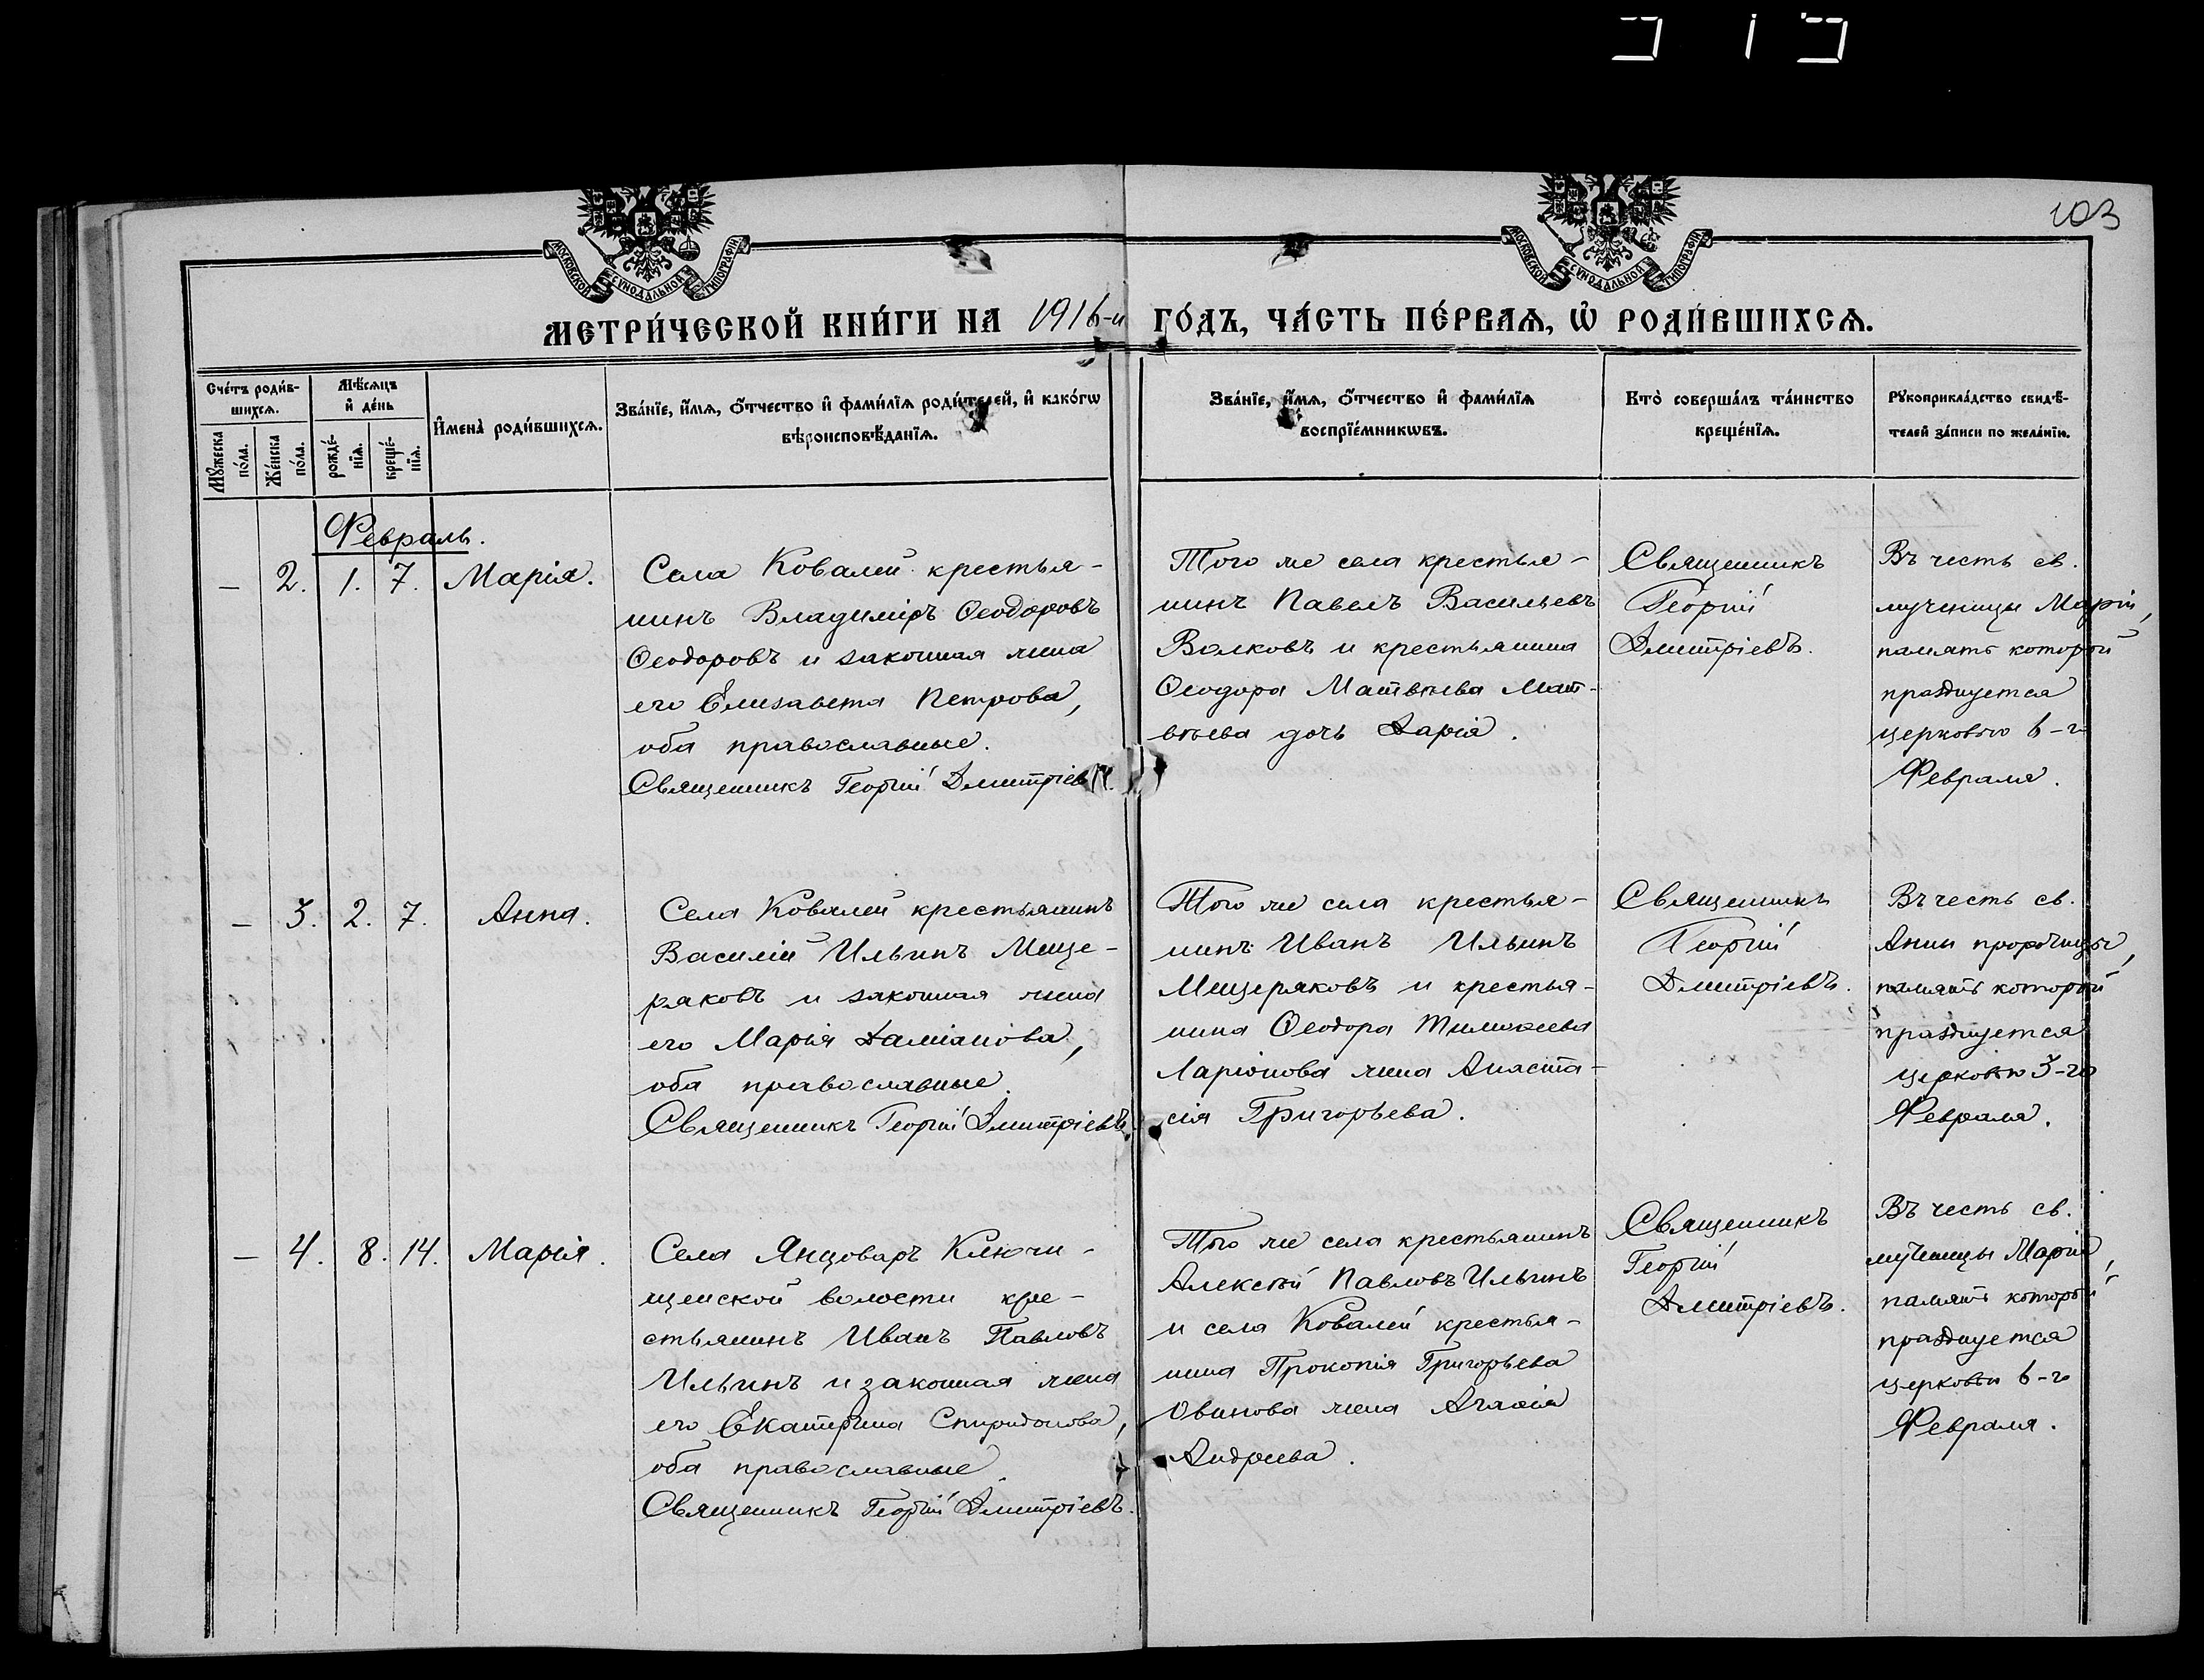 103
МОСКОВСКОЙ СѴНОДАЛЬНОЙ ТИПОГРАФІИ
МОСКОВСКОЙ СѴНОДАЛЬНОЙ ТИПОГРАФІИ
МЕТРИ́ЧЕСКОЙ КНИ́ГИ НА 1916-й ГО́ДЪ, ЧА́СТЬ ПЕ́РВАѦ, Ѽ РОДИ́ВШИХСѦ.
Сче́тъ роди́в-
шихсѧ.
Мꙋ́жеска
по́ла.
Же́нска
по́ла.
Мѣ́сѧцъ
и҆ де́нь
рожде́-
нїѧ.
креще́-
нїѧ.
И҆мена̀ роди́вшихсѧ.
Зва́нїе, и҆́мѧ, ѻ҆́тчество и҆ фами́лїѧ роди́телей, и҆ како́гѡ
вѣроисповѣ́данїѧ.
Зва́нїе, и҆́мѧ, ѻ҆́тчество и҆ фами́лїѧ
воспрїе́мникѡвъ.
Кто̀ соверша́лъ та́инство
креще́нїѧ.
Рꙋкоприкла́дство свидѣ́-
телей за́писи по жела́нїю.
Февраль.
– 2. 1. 7. Марія.
Села Ковалей крестья-
нинъ Владиміръ Ѳеодоровъ
Ѳеодоровъ и законная жена
его Елизавета Петрова,
оба православные.
Священникъ Георгій Дмитріевъ.
Того же села крестья-
нинъ Павелъ Васильевъ
Волковъ и крестьянина
Ѳеодора Матвѣева Мат-
вѣева дочь Дарія.
Священникъ
Георгій
Дмитріевъ.
Въ честь св.
мученицы Маріи,
память которой
празднуется
церковью 6-го
Февраля.
– 3. 2. 7. Анна.
Села Ковалей крестьянинъ
Василій Ильинъ Меще-
ряковъ и законная жена
его Марія Даміанова,
оба православные.
Священникъ Георгій Дмитріевъ.
Того же села крестья-
нинъ Иванъ Ильинъ
Мещеряковъ и крестья-
нина Ѳеодора Тимоѳеева
Ларіонова жена Анаста-
сія Григорьева.
Священникъ
Георгій
Дмитріевъ.
Въ честь св.
Анны пророчицы,
память которой
празднуется
церковью 3-го
Февраля.
– 4. 8. 14. Марія.
Села Янцоваръ Ключи-
щенской волости кре-
стьянинъ Иванъ Павловъ
Ильинъ и законная жена
его Екатерина Спиридонова,
оба православные.
Священникъ Георгій Дмитріевъ.
Того же села крестьянинъ
Алексѣй Павловъ Ильинъ
и села Ковалей крестья-
нина Прокопія Григорьева
Овинова жена Агаѳія
Андреева.
Священникъ
Георгій
Дмитріевъ.
Въ честь св.
мученицы Маріи,
память которой
празднуется
церковью 6-го
Февраля.